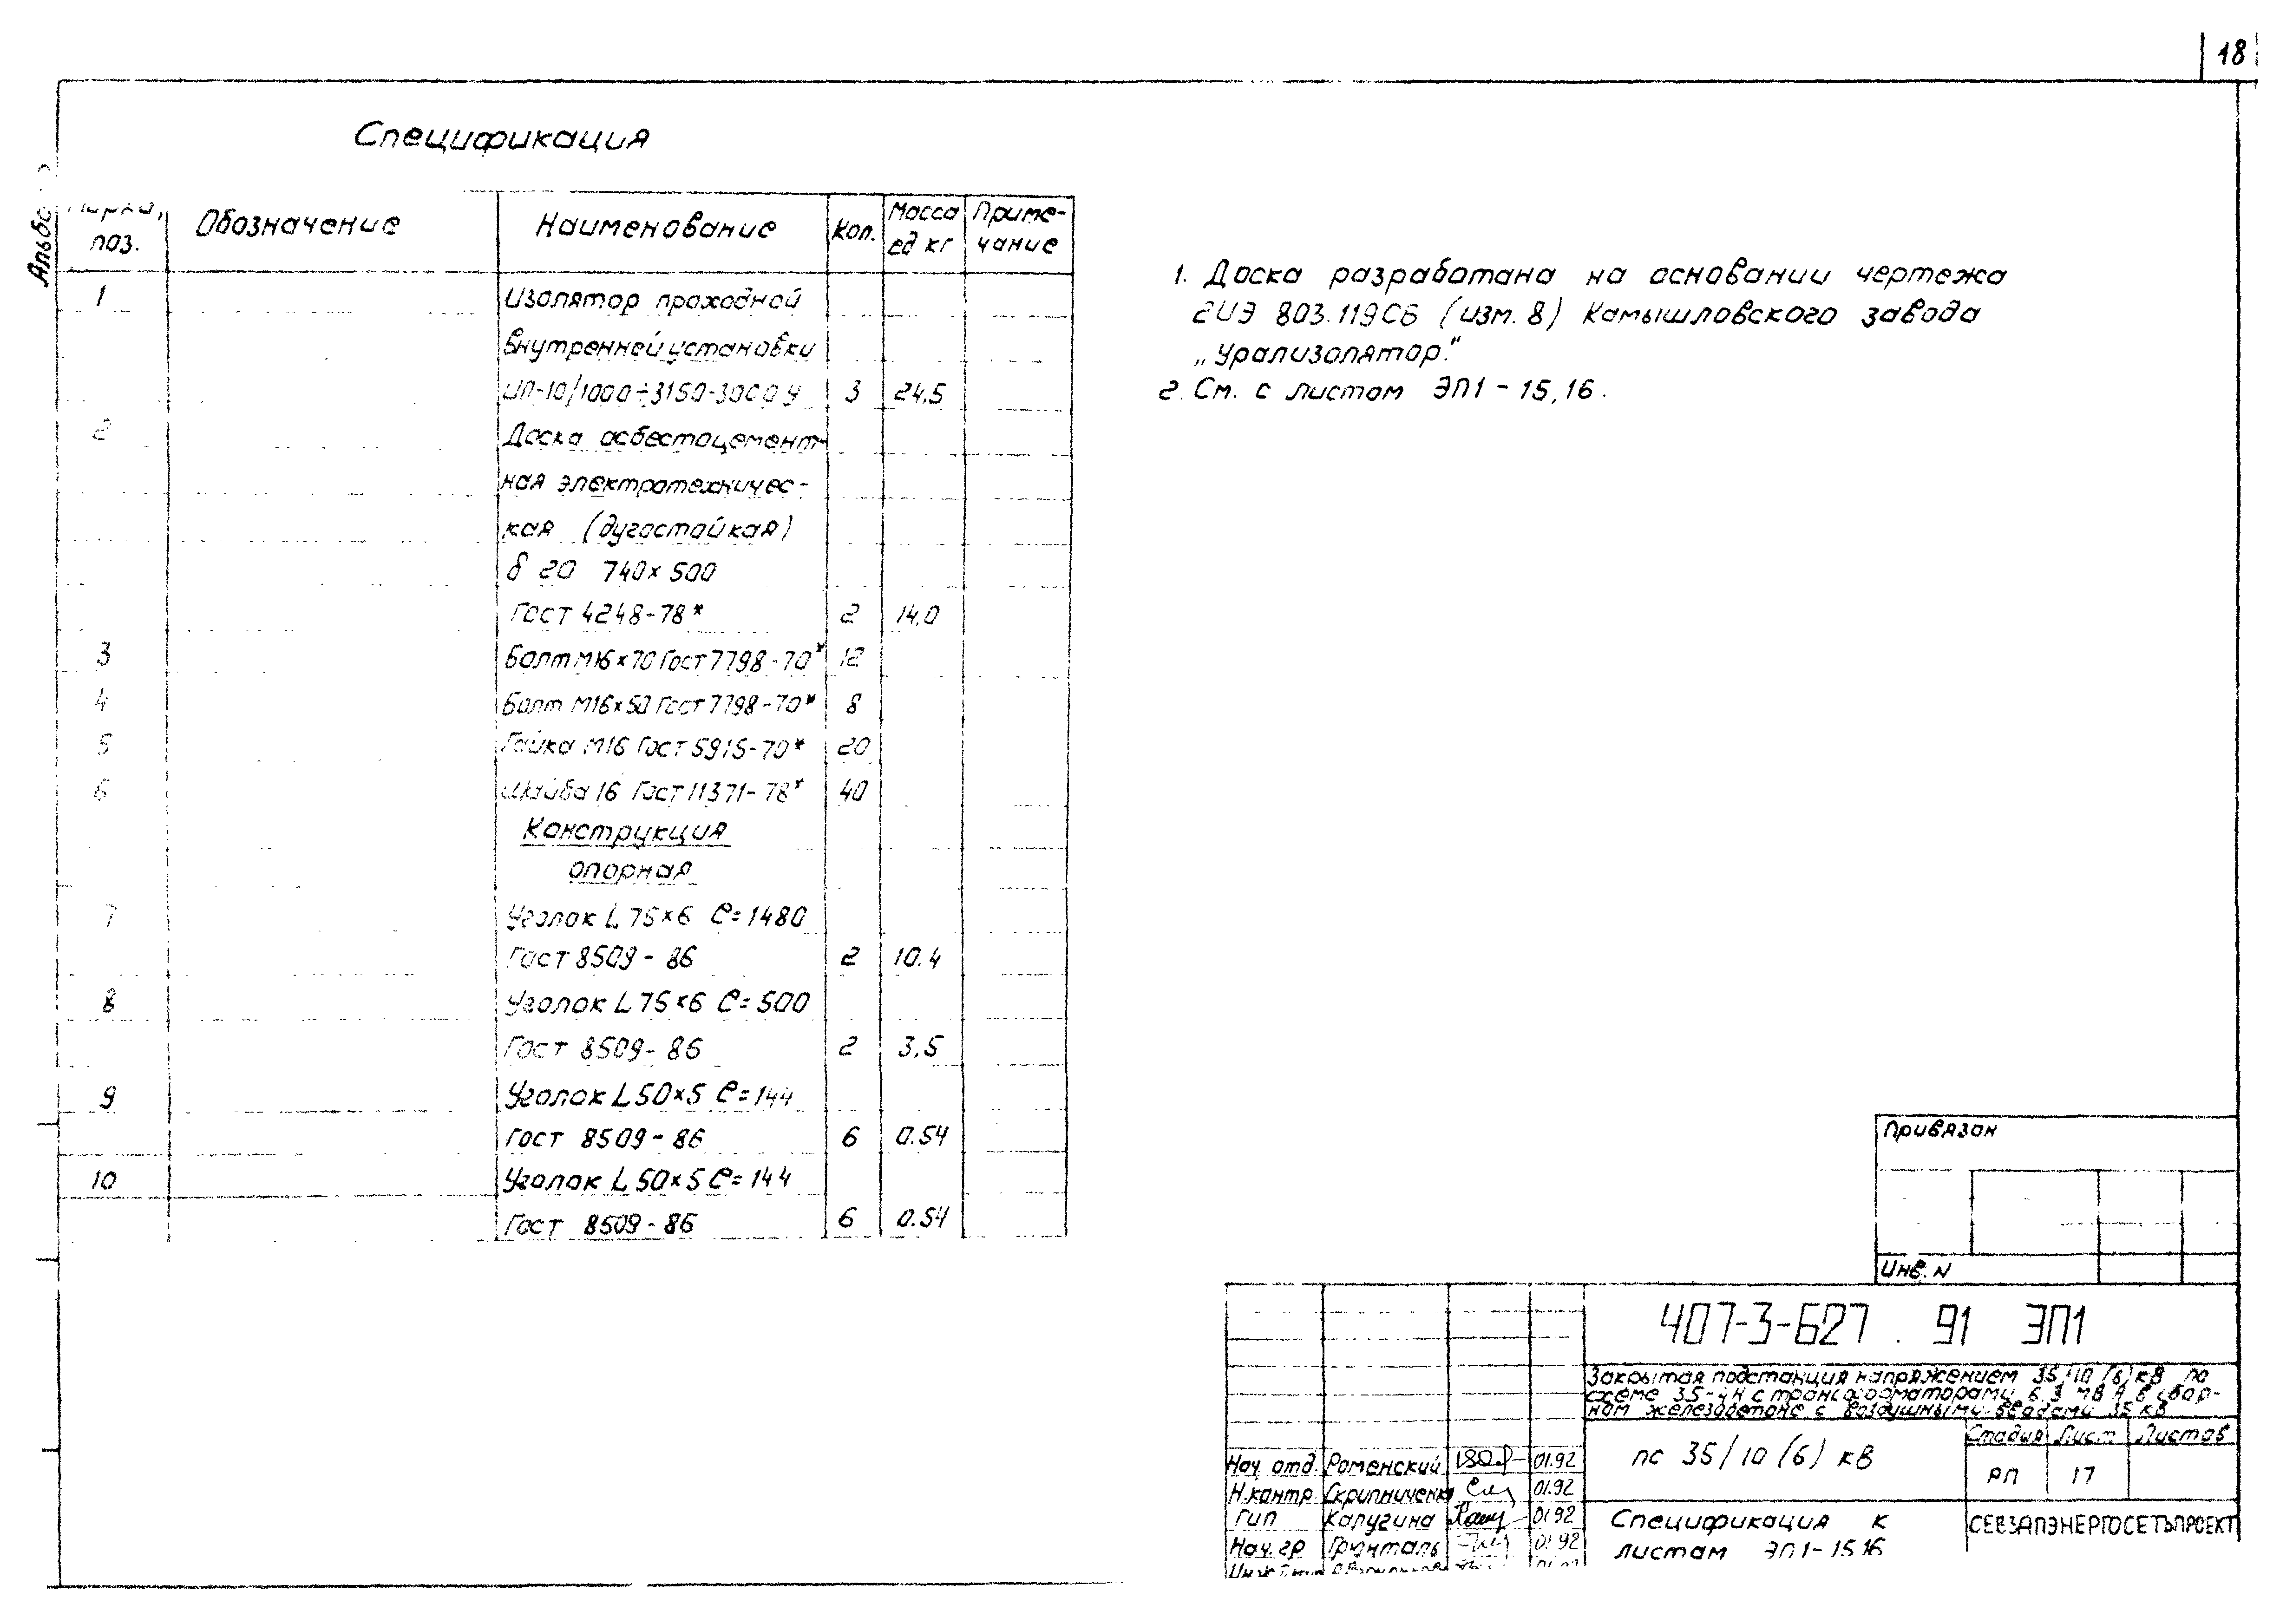 18
Спецификация
поз.
Обозначение
Наименование
Кол.
Масса ед кг
Приме-чание
1 Изолятор проходной
внутренней установки
ИП-10/1000÷3150-3000 У 3 24,5
2 Доска асбестоцемент-
ная электротехничес-
кая (дугостойкая)
δ 20 740×500
Гост 4248-78* 2 14,0
3 Болт М16×70 Гост 7798-70* 12
4 Болт М16×50 Гост 7798-70* 8
5 Гайка М16 Гост 5915-70* 20
6 Шайба 16 Гост 11371-78* 40
Конструкция
опорная
7 Уголок L 75×6 ℓ=1480
Гост 8509-86 2 10.4
8 Уголок L 75×6 ℓ=500
Гост 8509-86 2 3,5
9 Уголок L 50×5 ℓ=144
Гост 8509-86 6 0.54
10 Уголок L 50×5 ℓ=144
Гост 8509-86 6 0.54
1. Доска разработана на основании чертежа
2ИЭ 803.119СБ (изм. 8) Камышловского завода
„Урализолятор."
2. См. с листом ЭП1-15,16.
Привязан
Инв. N
407-3-627.91 ЭП1
Закрытая подстанция напряжением 35/10 (6) кВ по
схеме 35-4Н с трансформаторами 6,3 МВА в сбор-
ном железобетоне с воздушными вводами 35 кВ
ПС 35/10 (6) кВ
Стадия Лист Листов
РП 17
Спецификация к
листам ЭП1-15,16
СЕВЗАПЭНЕРГОСЕТЬПРОЕКТ
Нач отд. Роменский 01.92
Н.контр. Скрипниченко 01.92
Гип Калугина 01.92
Нач. гр Грюнталь 01.92